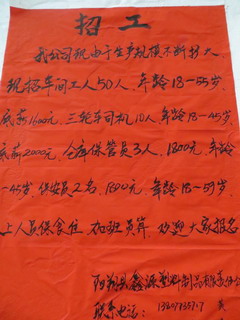 招工
我公司现由于生产规模不断扩大
现招车间工人50人、年龄18-55岁、
底薪1600元、三轮车司机10人、年龄18-45岁、
底薪2000元、仓库保管员3人、1800元、年龄
-45岁、保安员2名、1800元、年龄18-59岁、
上人员保食住、加班另算、欢迎大家报名
阿荣县鑫源塑料制品有限
联系电话：